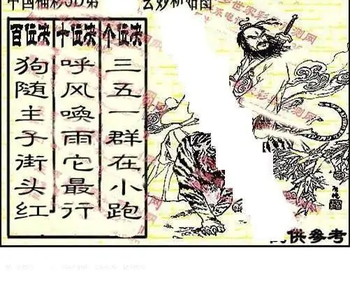 中国福彩3D第
百位诀
狗随主子街头红
十位诀
呼风唤雨它最行
个位诀
三五一群在小跑
供参考